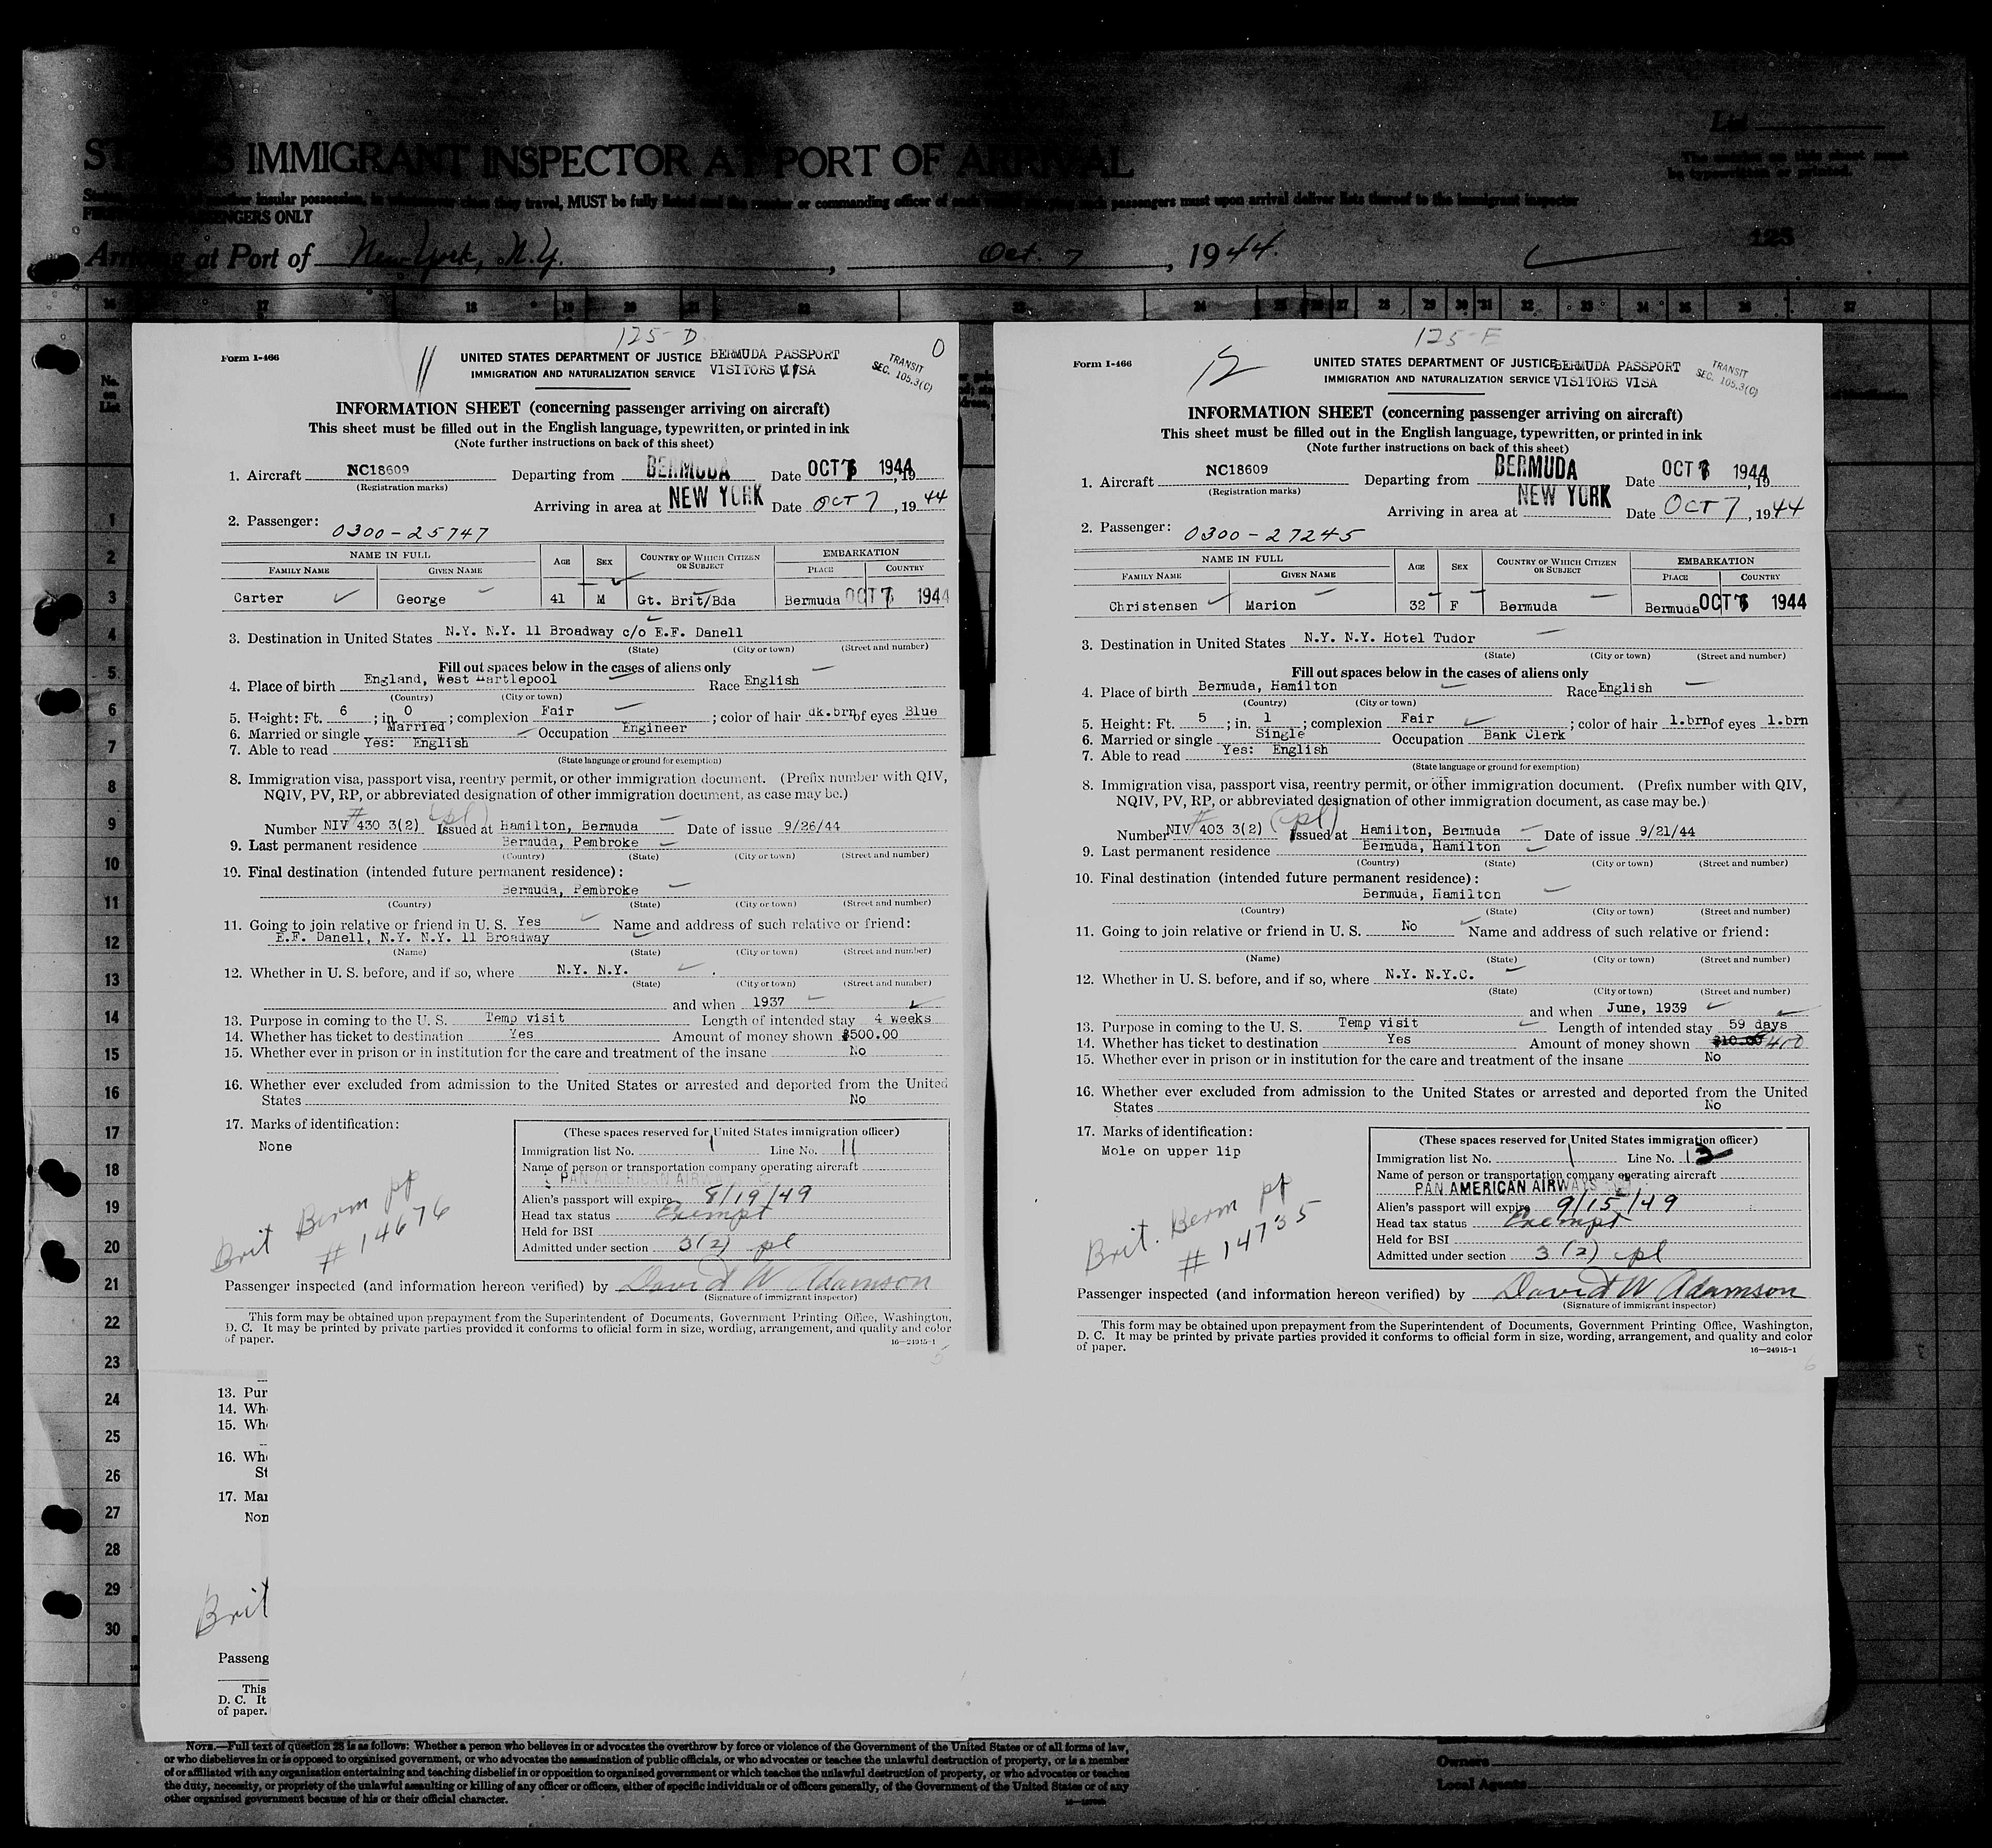 IMMIGRANT INSPECTOR AT PORT OF ARRIVAL
List
The entries on this sheet must
be typewritten or printed.
insular possession, in whatsoever class they travel, MUST be fully listed and the master or commanding officer of each passengers must upon arrival deliver lists thereof to the immigrant inspector
PASSENGERS ONLY
Arriving at Port of New York, N.Y., Oct. 7, 1944.
125
16 17 18 19 20 21 22 23 24 25 26 27 28 29 30 31 32 33 34 35 36 37
No. on List
1
2
3
4
5
6
7
8
9
10
11
12
13
14
15
16
17
18
19
20
21
22
23
24
25
26
27
28
29
30
125-D
Form I-466
11
UNITED STATES DEPARTMENT OF JUSTICE
IMMIGRATION AND NATURALIZATION SERVICE
BERMUDA PASSPORT
VISITORS VISA
TRANSIT
SEC. 105.3(C)
0
INFORMATION SHEET (concerning passenger arriving on aircraft)
This sheet must be filled out in the English language, typewritten, or printed in ink
(Note further instructions on back of this sheet)
1. Aircraft NC18609 Departing from BERMUDA Date OCT 7 1944, 19
(Registration marks)
Arriving in area at NEW YORK Date OCT 7, 1944
2. Passenger: 0300-25747
NAME IN FULL AGE SEX COUNTRY OF WHICH CITIZEN OR SUBJECT EMBARKATION
FAMILY NAME GIVEN NAME PLACE COUNTRY
Carter George 41 M Gt. Brit/Bda Bermuda OCT 7 1944
3. Destination in United States N.Y. N.Y. 11 Broadway c/o E.F. Danell
(State) (City or town) (Street and number)
Fill out spaces below in the cases of aliens only
4. Place of birth England, West Hartlepool Race English
(Country) (City or town)
5. Height: Ft. 6; in. 0; complexion Fair; color of hair dk.brn of eyes Blue
6. Married or single Married Occupation Engineer
7. Able to read Yes: English
(State language or ground for exemption)
8. Immigration visa, passport visa, reentry permit, or other immigration document. (Prefix number with QIV,
NQIV, PV, RP, or abbreviated designation of other immigration document, as case may be.)
Number NIV # 430 3(2) (pl) Issued at Hamilton, Bermuda Date of issue 9/26/44
9. Last permanent residence Bermuda, Pembroke
(Country) (State) (City or town) (Street and number)
10. Final destination (intended future permanent residence):
Bermuda, Pembroke
(Country) (State) (City or town) (Street and number)
11. Going to join relative or friend in U. S. Yes Name and address of such relative or friend:
E.F. Danell, N.Y. N.Y. 11 Broadway
(Name) (State) (City or town) (Street and number)
12. Whether in U. S. before, and if so, where N.Y. N.Y.
(State) (City or town) (Street and number)
and when 1937
13. Purpose in coming to the U. S. Temp visit Length of intended stay 4 weeks
14. Whether has ticket to destination Yes Amount of money shown $500.00
15. Whether ever in prison or in institution for the care and treatment of the insane No
16. Whether ever excluded from admission to the United States or arrested and deported from the United
States No
17. Marks of identification:
None
Brit Berm pp
# 14676
(These spaces reserved for United States immigration officer)
Immigration list No. 1 Line No. 11
Name of person or transportation company operating aircraft
PAN AMERICAN AIRWAYS
Alien's passport will expire 8/19/49
Head tax status Exempt
Held for BSI
Admitted under section 3(2) pl
Passenger inspected (and information hereon verified) by David W Adamson
(Signature of immigrant inspector)
This form may be obtained upon prepayment from the Superintendent of Documents, Government Printing Office, Washington,
D. C. It may be printed by private parties provided it conforms to official form in size, wording, arrangement, and quality and color
of paper.
16—24915-1
5
125-E
Form I-466
12
UNITED STATES DEPARTMENT OF JUSTICE
IMMIGRATION AND NATURALIZATION SERVICE
BERMUDA PASSPORT
VISITORS VISA
TRANSIT
SEC. 105.3(C)
INFORMATION SHEET (concerning passenger arriving on aircraft)
This sheet must be filled out in the English language, typewritten, or printed in ink
(Note further instructions on back of this sheet)
1. Aircraft NC18609 Departing from BERMUDA Date OCT 7 1944, 19
(Registration marks)
Arriving in area at NEW YORK Date OCT 7, 1944
2. Passenger: 0300-27245
NAME IN FULL AGE SEX COUNTRY OF WHICH CITIZEN OR SUBJECT EMBARKATION
FAMILY NAME GIVEN NAME PLACE COUNTRY
Christensen Marion 32 F Bermuda Bermuda OCT 7 1944
3. Destination in United States N.Y. N.Y. Hotel Tudor
(State) (City or town) (Street and number)
Fill out spaces below in the cases of aliens only
4. Place of birth Bermuda, Hamilton Race English
(Country) (City or town)
5. Height: Ft. 5; in. 1; complexion Fair; color of hair l.brn of eyes l.brn
6. Married or single Single Occupation Bank Clerk
7. Able to read Yes: English
(State language or ground for exemption)
8. Immigration visa, passport visa, reentry permit, or other immigration document. (Prefix number with QIV,
NQIV, PV, RP, or abbreviated designation of other immigration document, as case may be.)
Number NIV # 403 3(2) (pl) Issued at Hamilton, Bermuda Date of issue 9/21/44
9. Last permanent residence Bermuda, Hamilton
(Country) (State) (City or town) (Street and number)
10. Final destination (intended future permanent residence):
Bermuda, Hamilton
(Country) (State) (City or town) (Street and number)
11. Going to join relative or friend in U. S. No Name and address of such relative or friend:
(Name) (State) (City or town) (Street and number)
12. Whether in U. S. before, and if so, where N.Y. N.Y.C.
(State) (City or town) (Street and number)
and when June, 1939
13. Purpose in coming to the U. S. Temp visit Length of intended stay 59 days
14. Whether has ticket to destination Yes Amount of money shown $10.00 400
15. Whether ever in prison or in institution for the care and treatment of the insane No
16. Whether ever excluded from admission to the United States or arrested and deported from the United
States No
17. Marks of identification:
Mole on upper lip
Brit. Berm pp
# 14735
(These spaces reserved for United States immigration officer)
Immigration list No. 1 Line No. 12
Name of person or transportation company operating aircraft
PAN AMERICAN AIRWAYS
Alien's passport will expire 9/15/49
Head tax status Exempt
Held for BSI
Admitted under section 3(2) pl
Passenger inspected (and information hereon verified) by David W Adamson
(Signature of immigrant inspector)
This form may be obtained upon prepayment from the Superintendent of Documents, Government Printing Office, Washington,
D. C. It may be printed by private parties provided it conforms to official form in size, wording, arrangement, and quality and color
of paper.
16—24915-1
6
13. Pur
14. Wh
15. Wh
16. Wh
St
17. Mar
Non
Brit
Passeng
This
D. C. It
of paper.
NOTE.—Full text of question 28 is as follows: Whether a person who believes in or advocates the overthrow by force or violence of the Government of the United States or of all forms of law,
or who disbelieves in or is opposed to organized government, or who advocates the assassination of public officials, or who advocates or teaches the unlawful destruction of property, or is a member
of or affiliated with any organization entertaining and teaching disbelief in or opposition to organized government or which teaches the unlawful destruction of property, or who advocates or teaches
the duty, necessity, or propriety of the unlawful assaulting or killing of any officer or officers, either of specific individuals or of officers generally, of the Government of the United States or of any
other organized government because of his or their official character.
Owners
Local Agents